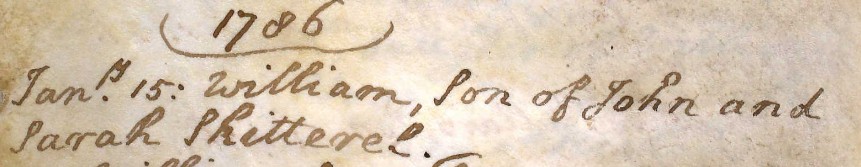 1786
Jan.ry 15: William, Son of John and
Sarah Skitterel.